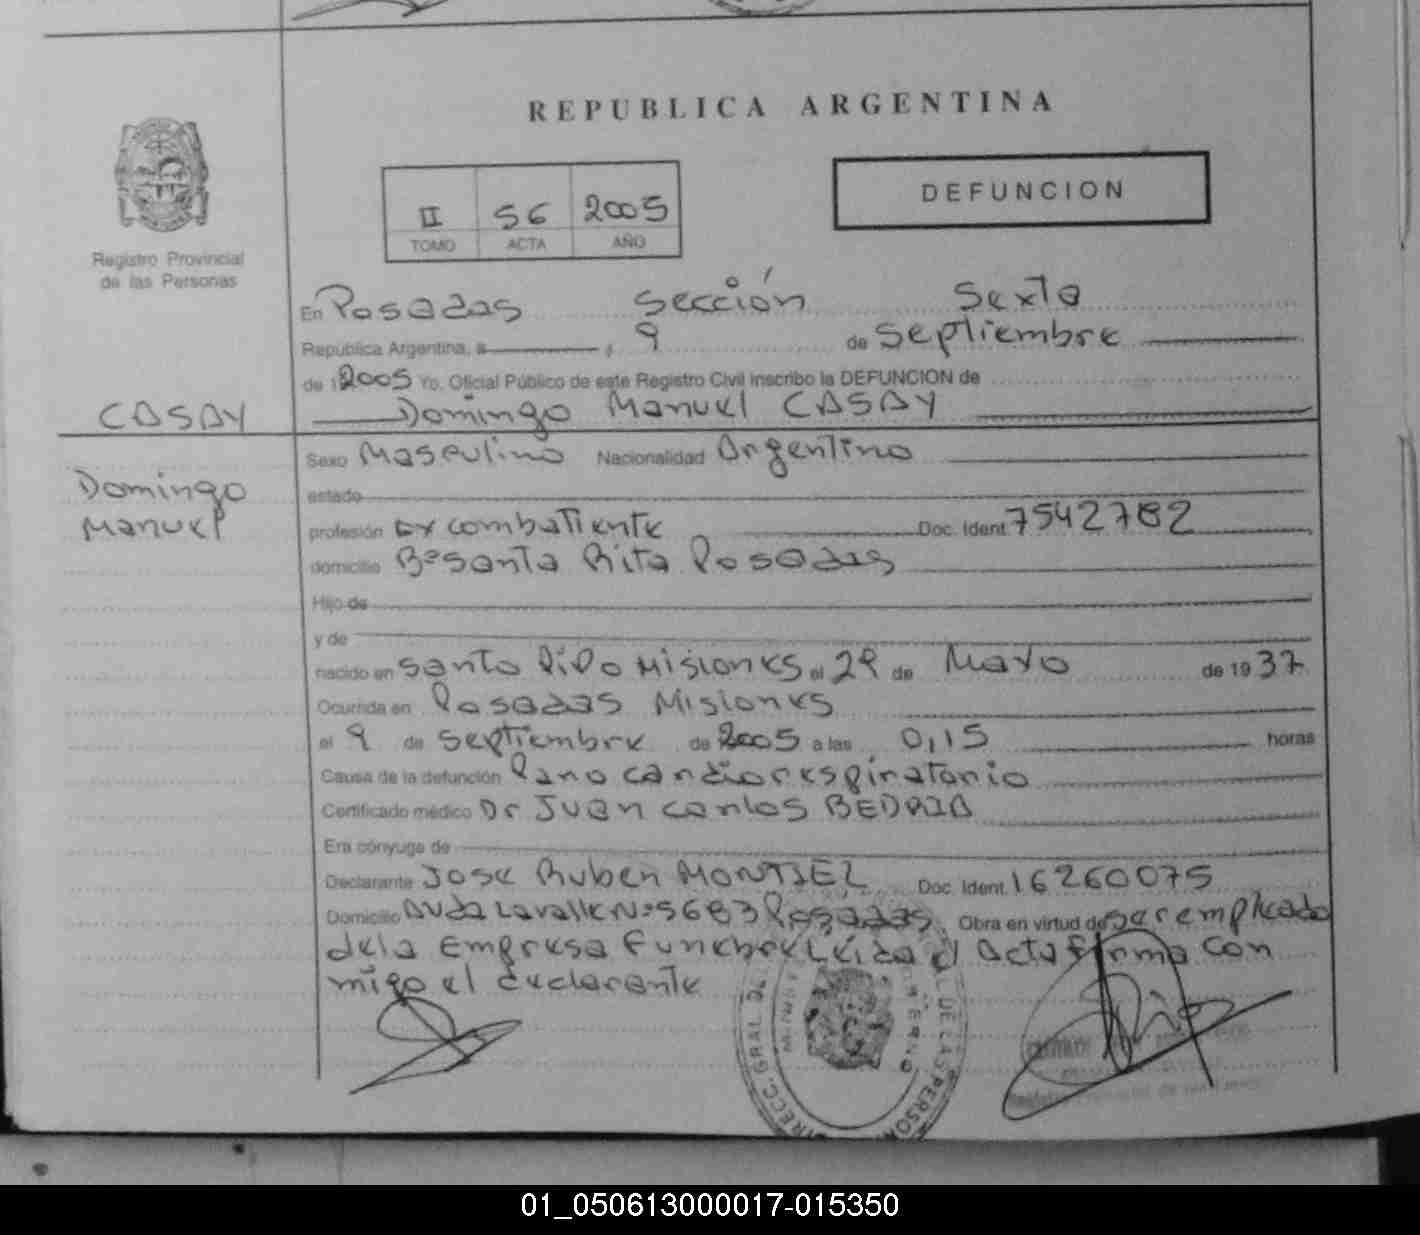 REPUBLICA ARGENTINA
DEFUNCION
II 56 2005
TOMO ACTA AÑO
Registro Provincial
de las Personas
En Posadas Sección Sexta
Republica Argentina, a 9 de Septiembre
de 2005 Yo. Oficial Público de este Registro Civil inscribo la DEFUNCION de
CASAY
Domingo Manuel CASAY
Domingo
Manuel
Sexo Masculino Nacionalidad Argentino
estado
profesión Ex combatiente Doc. Ident. 7542782
domicilio Bº Santa Rita Posadas
Hijo de
y de
nacido en Santo Pipo Misiones el 29 de Mayo de 1937
Ocurrida en Posadas Misiones
el 9 de Septiembre de 2005 a las 0,15 horas
Causa de la defunción Paro cardiorespiratorio
Certificado médico Dr Juan Carlos BEDRIA
Era cónyuge de
Declarante Jose Ruben MONTIEL Doc. Ident. 16260075
Domicilio Avda Lavalle Nº 5683 Posadas. Obra en virtud de ser empleado
de la Empresa Funebre Leida el Acta firma con
migo el declarante
DIRECC. GRAL. DE LAS PERSO
01_050613000017-015350